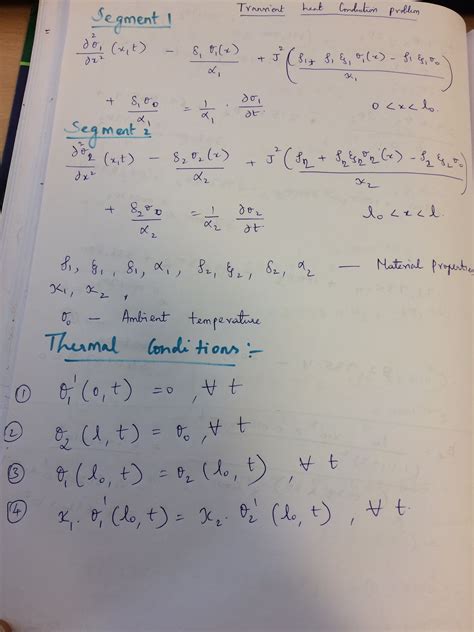 Transient heat Conduction problem
Segment 1
∂²θ₁/∂x² (x,t) − δ₁ θ₁(x)/α₁ + J² (ρ₁ + ρ₁ ξ₁ θ₁(x) − ρ₁ ξ₁ θ₀)/χ₁
+ δ₁ θ₀/α₁ = 1/α₁ · ∂θ₁/∂t 0 < x < l₀.
Segment 2
∂²θ₂/∂x² (x,t) − δ₂ θ₂(x)/α₂ + J² (ρ₂ + ρ₂ ξ₂ θ₂(x) − ρ₂ ξ₂ θ₀)/χ₂
+ δ₂ θ₀/α₂ = 1/α₂ ∂θ₂/∂t l₀ < x < l.
ρ₁, ξ₁, δ₁, α₁, ρ₂, ξ₂, δ₂, α₂ — Material properties
χ₁, χ₂,
θ₀ — Ambient temperature
Thermal Conditions:-
① θ₁'(0,t) = 0, ∀ t
② θ₂(l,t) = θ₀, ∀ t
③ θ₁(l₀,t) = θ₂(l₀,t), ∀ t
④ χ₁·θ₁'(l₀,t) = χ₂·θ₂'(l₀,t), ∀ t.